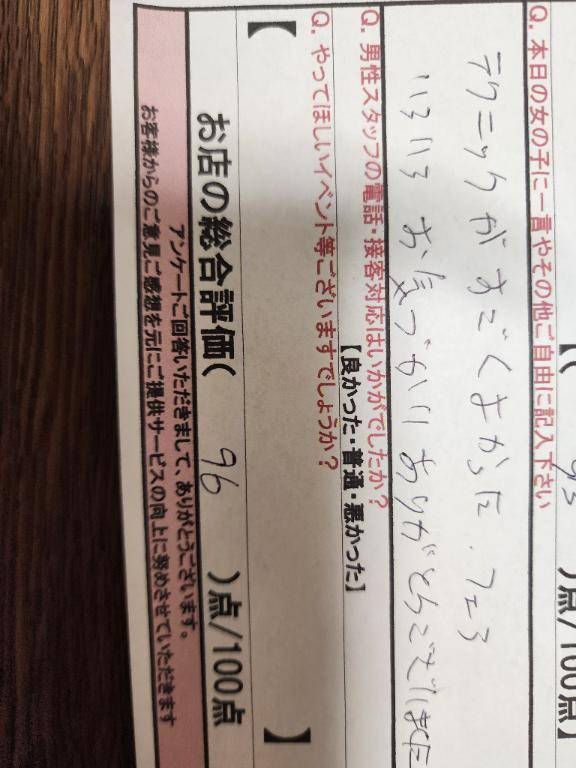 )点/100点】
Q. 本日の女の子に一言やその他ご自由に記入下さい
テクニックがすごくよかった. フェラ
いろいろ お気づかい ありがとうございました
Q. 男性スタッフの電話・接客対応はいかがでしたか?
【良かった・普通・悪かった】
Q. やってほしいイベント等ございますでしょうか?
【 】
お店の総合評価( 96 )点/100点
アンケートご回答いただきまして、ありがとうございます。
お客様からのご意見ご感想を元にご提供サービスの向上に努めさせていただきます